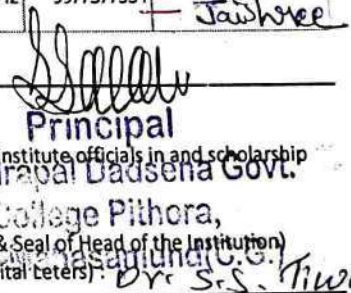 Jaishree
Principal
Institute officials in and scholarship
Dadsena Govt.
College Pithora,
& Seal of Head of the Institution)
(C.G.)
ital Leters) : Dr. S.S. Tiw